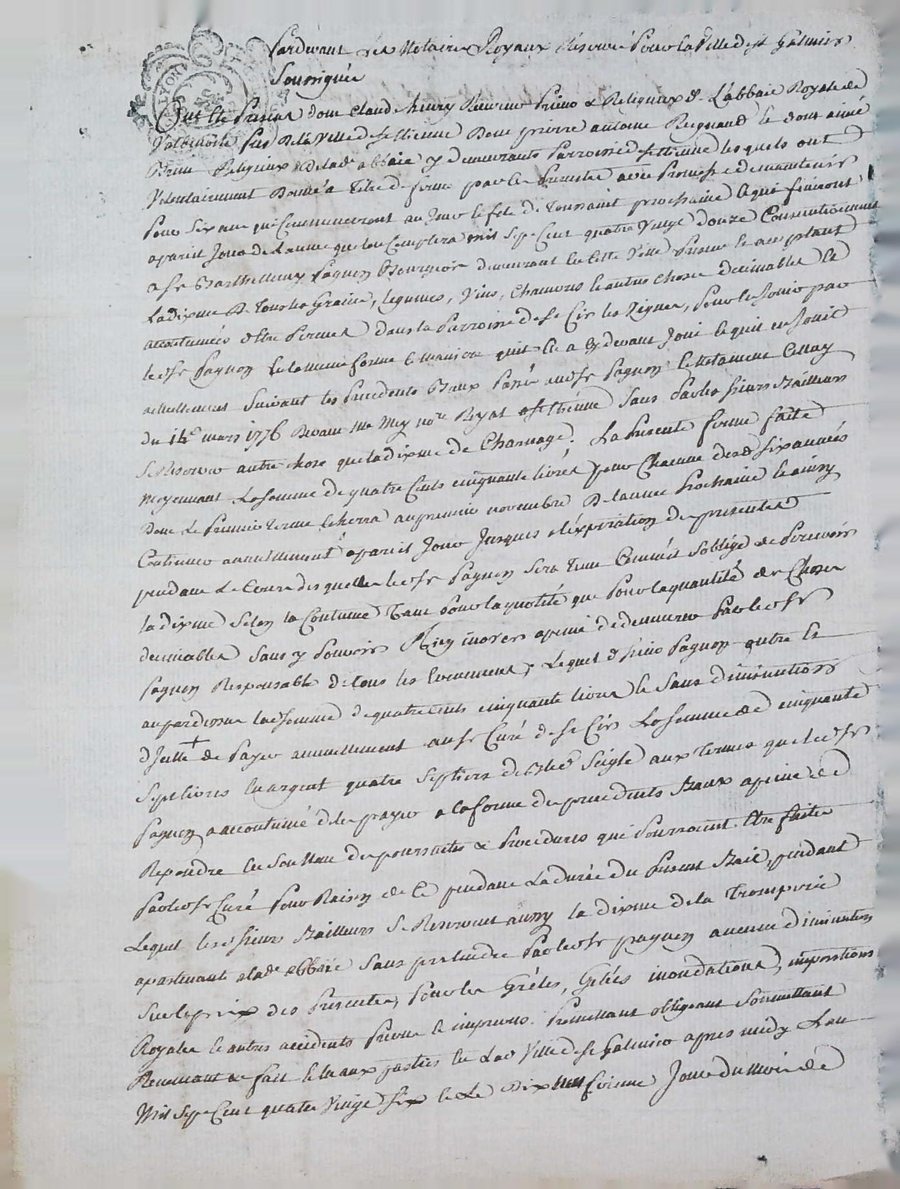 Pardevant les Notaires Royaux Réservé Pour la Ville de St Galmier
Soussignée
Dom Claud henry Prieur & Religieux de L'abbaie Royale de
Valbenoite près de la Ville de St Etienne Dom pierre antoine le dom aimé
Religieux de lad. abbaie y demeurants Parroisse de St Etienne lesquels ont
Volontairement Donné a titre de ferme par les Presentes avec Promesse de maintenir
Pour Six ans qui Commenceront au Jour & fête de Toussaint prochaine & qui finiront
apareil Jour de L'année que l'on Comptera mil Sept Cent quatre vingt Douze Consecutivement
a Sr Barthelemy Pagnon Bourgeois demeurant en Cette Ville Present & acceptant
La dixme de Tous les Grains, legumes, Vins, Chanvres & autres Choses decimables &
accoutumées d'être Perçues Dans la Parroisse de St Cir les Vignes, Pour le Jouir par
led. Sr Pagnon de la meme forme & maniere qu'il en a Cy devant Joui & qu'il en Jouit
actuellement Suivant les Precedents Baux Passé aud. Sr Pagnon & notament Celluy
du 14e mars 1776 Devant Me Mey nore Royal a St Etienne Sans Par les sieurs Bailleurs
Se Reserver autre Chose que la dixme de Charnage. La Presente ferme faite
moyennant La Somme de quatre Cents Cinquante livres Pour Chacune desd. Six années
Dont Le Premier Terme Echerra au premier novembre De l'année Prochaine & ainsy
Continuer annuellement apareil Jour Jusques a l'expiration des presentes
pendant Le Cours desquelles led. Sr Pagnon Sera Tenu Comme il S'oblige de Percevoir
la dixme Selon la Coutume Tant Pour la quotité que Pour la quantité des Choses
decimables Sans y Pouvoir Rien innover a peine de demeurer Par led. Sr
Pagnon Responsable de tous les Evenements, Lequel dt Sieur Pagnon outre &
au par dessus la Somme de quatre Cents Cinquante livres & Sans diminution
d'Icelle de Payer annuellement au Sr Curé de St Cir La Somme de Cinquante
Sept livres en argent quatre Septiers de bled Seigle aux Termes que led. Sr
Pagnon a accoutumé de les payer a la forme des precedents Baux a peine de
Repondre en Son Nom des poursuites & Procedures qui Pourroient Etre faites
Par led. Sr Curé Pour Raison de Ce pendant La durée du Present Bail, pendant
Lequel les sieurs Bailleurs Se Reservent aussy la dixme de la Tromperie
apartenant a lad. abbaie Sans pretendre Par led. Sr pagnon aucune diminution
Sur le prix des Presentes, Pour les Grêles, Gelées inondations, impositions
Royales & autres accidents Prevus & imprevus. Promettant obligeant Soumettant
Renonçant &c fait & Lu aux parties En Lad. Ville de St Galmier apres midy L'an
Mil Sept Cent quatre Vingt Six & Le Dix Jour du Mois de